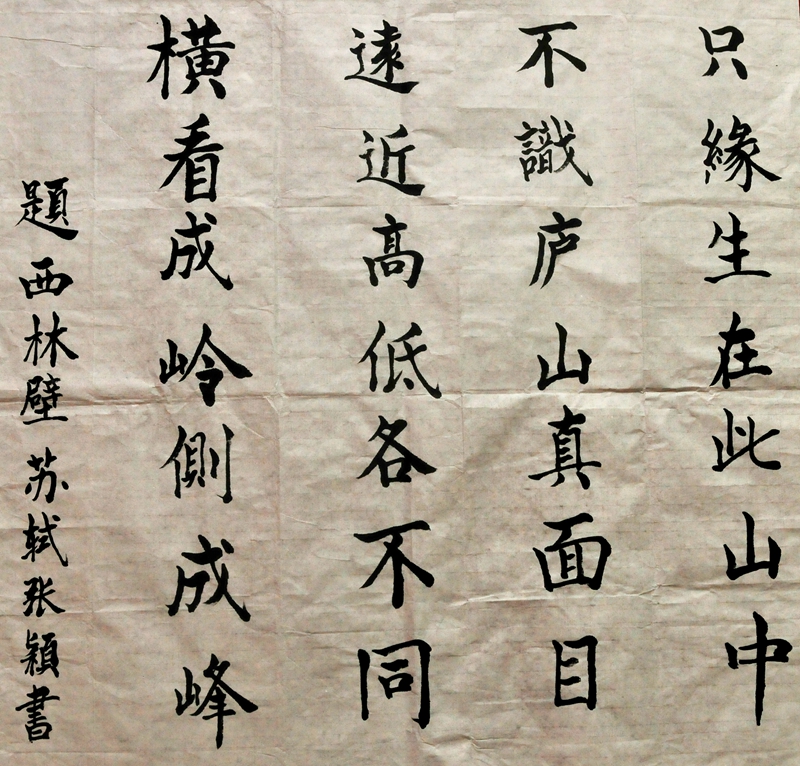 題西林壁 苏轼张穎書
横看成岭側成峰
遠近高低各不同
不識庐山真面目
只緣生在此山中